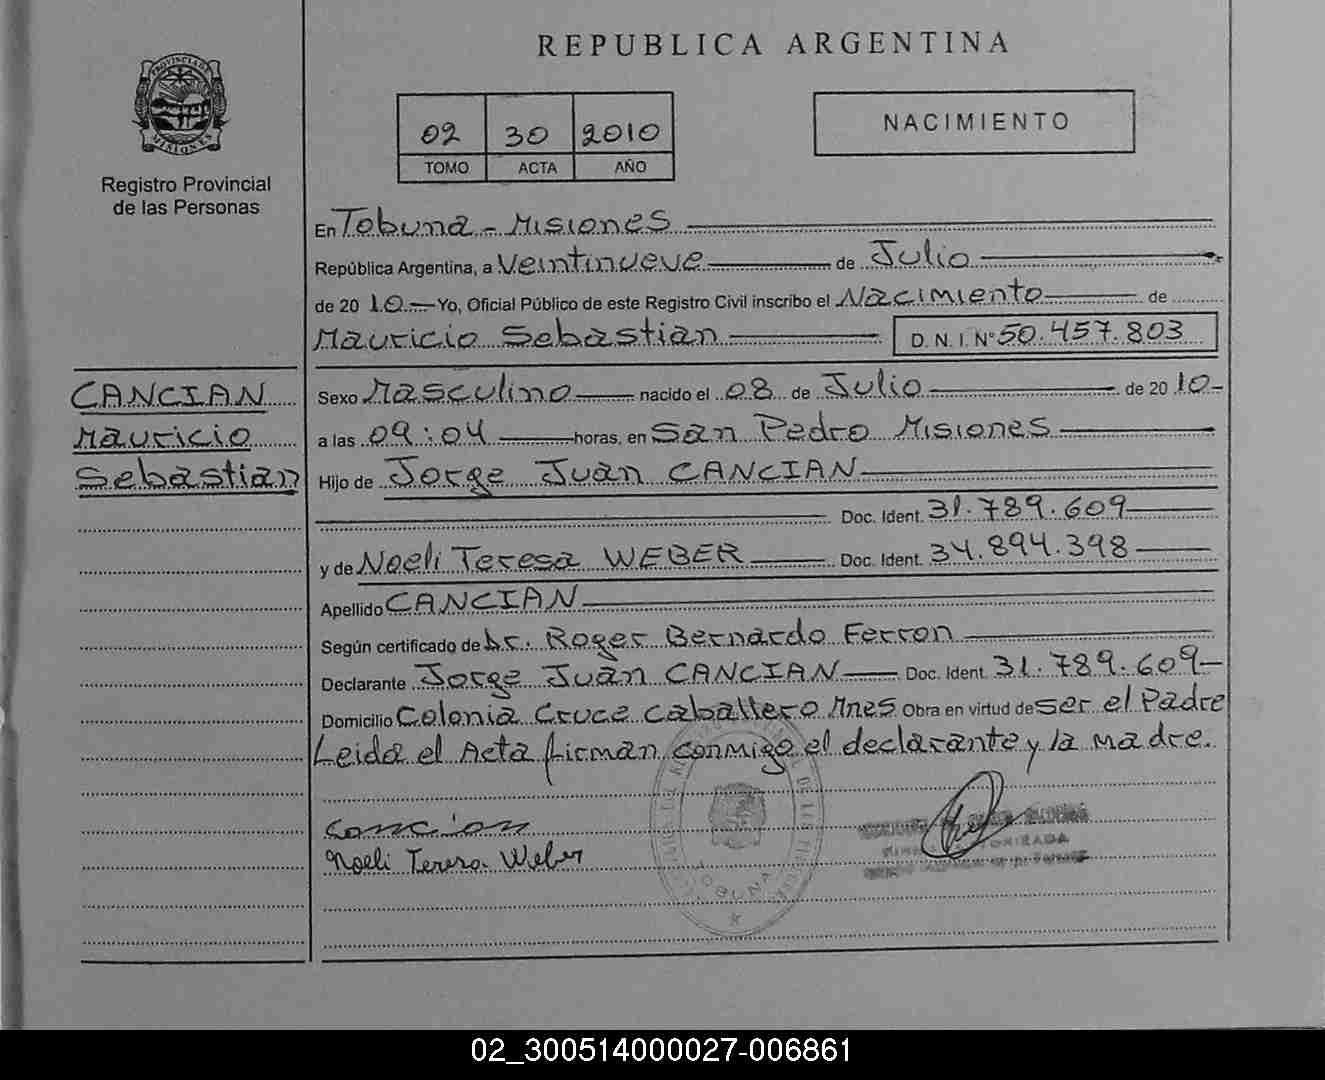 REPUBLICA ARGENTINA
PROVINCIA DE MISIONES
Registro Provincial
de las Personas
02 30 2010
TOMO ACTA AÑO
NACIMIENTO
En Tobuna - Misiones
República Argentina, a Veintinueve de Julio
de 2010.- Yo, Oficial Público de este Registro Civil inscribo el Nacimiento de
Mauricio Sebastian D. N. I. N° 50.457.803
CANCIAN
Mauricio
Sebastian
Sexo Masculino nacido el 08 de Julio de 2010-
a las 09:04 horas, en San Pedro Misiones
Hijo de Jorge Juan CANCIAN
Doc. Ident. 31.789.609
y de Noeli Teresa WEBER Doc. Ident. 34.894.398
Apellido CANCIAN
Según certificado de Dr. Roger Bernardo Ferron
Declarante Jorge Juan CANCIAN Doc. Ident. 31.789.609
Domicilio Colonia Cruce Caballero Mnes Obra en virtud de ser el Padre
Leida el Acta firman conmigo el declarante y la madre.
Cancian
Noeli Teresa Weber
TOBUNA
02_300514000027-006861